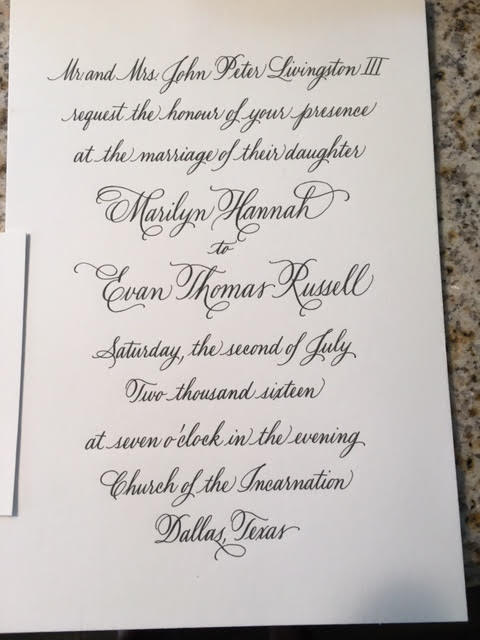 Mr. and Mrs. John Peter Livingston III
request the honour of your presence
at the marriage of their daughter
Marilyn Hannah
to
Evan Thomas Russell
Saturday, the second of July
Two thousand sixteen
at seven o'clock in the evening
Church of the Incarnation
Dallas, Texas